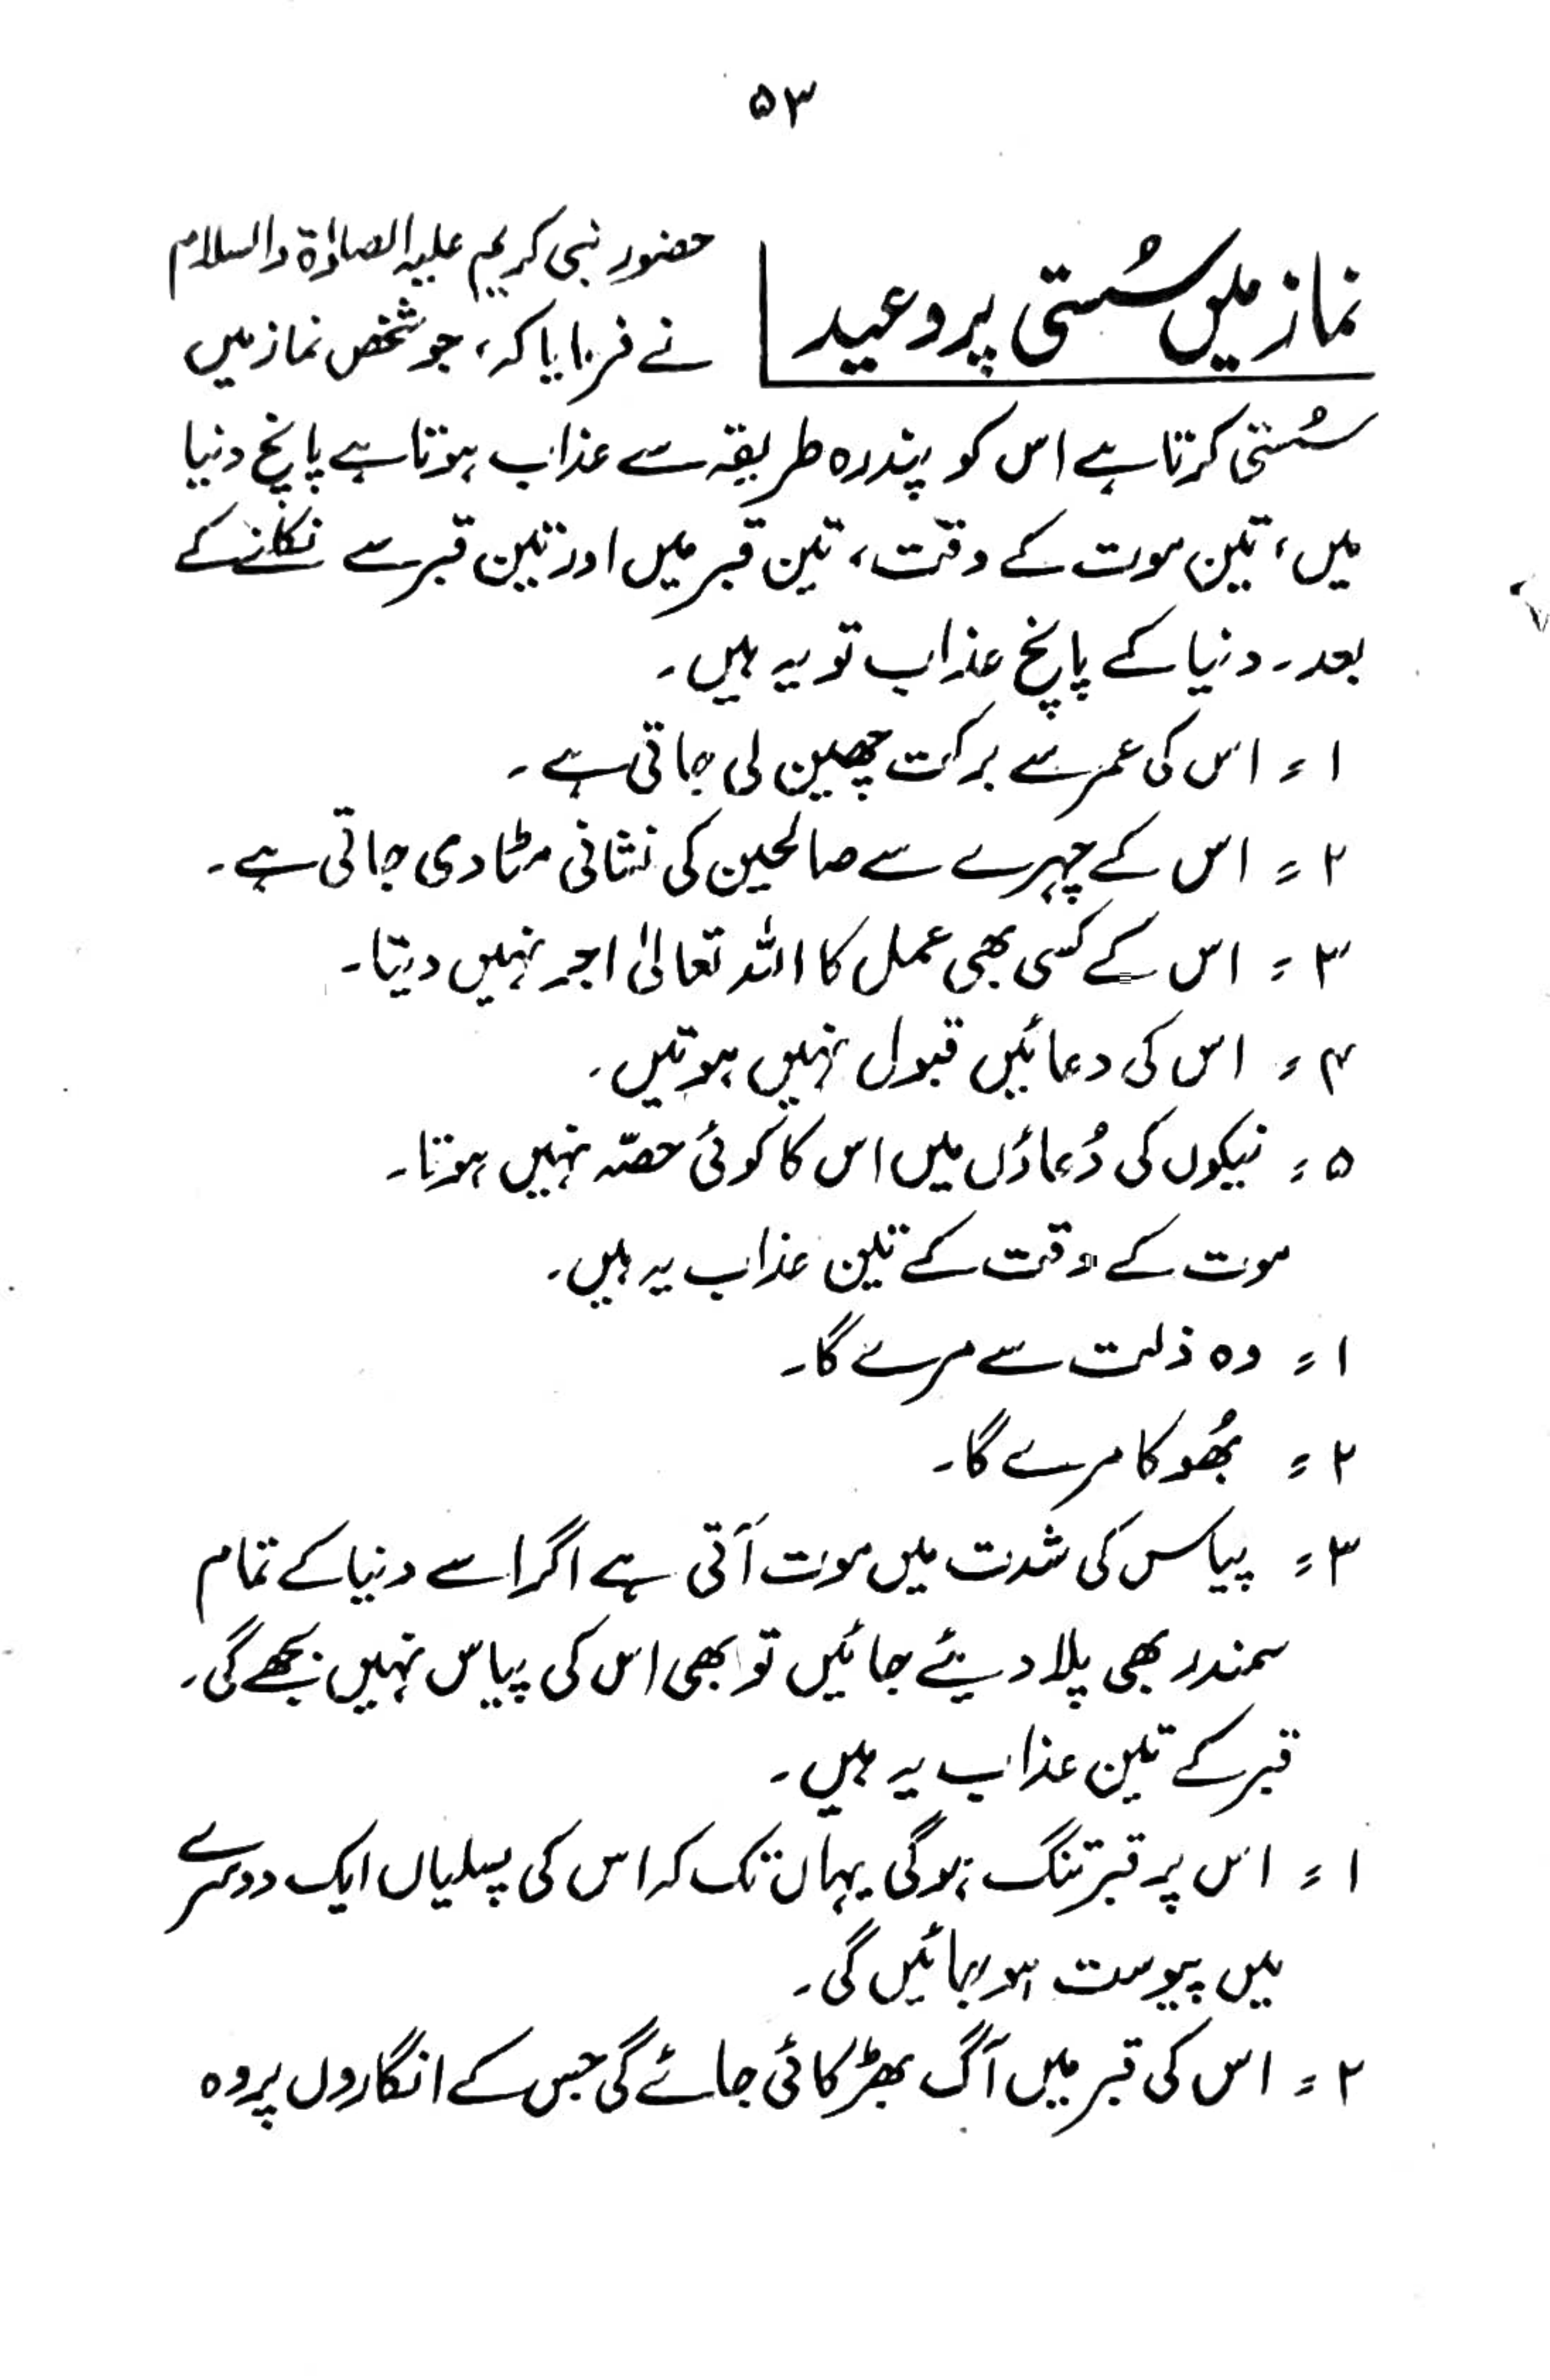 ۵۳
نماز میں سُستی پر وعید
حضور نبی کریم علیہ الصلوٰۃ والسلام
نے فرمایا کہ، جو شخص نماز میں
سُستی کرتا ہے اس کو پندرہ طریقہ سے عذاب ہوتا ہے پانچ دنیا
میں، تین موت کے وقت، تین قبر میں اور تین قبر سے نکلنے کے
بعد۔ دنیا کے پانچ عذاب تو یہ ہیں۔
۱ = اس کی عمر سے برکت چھین لی جاتی ہے۔
۲ = اس کے چہرے سے صالحین کی نشانی مٹا دی جاتی ہے۔
۳ = اس کے کسی بھی عمل کا اللہ تعالیٰ اجر نہیں دیتا۔
۴ = اس کی دعائیں قبول نہیں ہوتیں۔
۵ = نیکوں کی دُعاؤں میں اس کا کوئی حصّہ نہیں ہوتا۔
موت کے وقت کے تین عذاب یہ ہیں۔
۱ = وہ ذلت سے مرے گا۔
۲ = بھُوکا مرے گا۔
۳ = پیاس کی شدت میں موت آتی ہے اگر اسے دنیا کے تمام
سمندر بھی پلا دیئے جائیں تو بھی اس کی پیاس نہیں بجھے گی۔
قبر کے تین عذاب یہ ہیں۔
۱ = اس پر قبر تنگ ہوگی یہاں تک کہ اس کی پسلیاں ایک دوسرے
میں پیوست ہو جائیں گی۔
۲ = اس کی قبر میں آگ بھڑکائی جائے گی جس کے انگاروں پر وہ